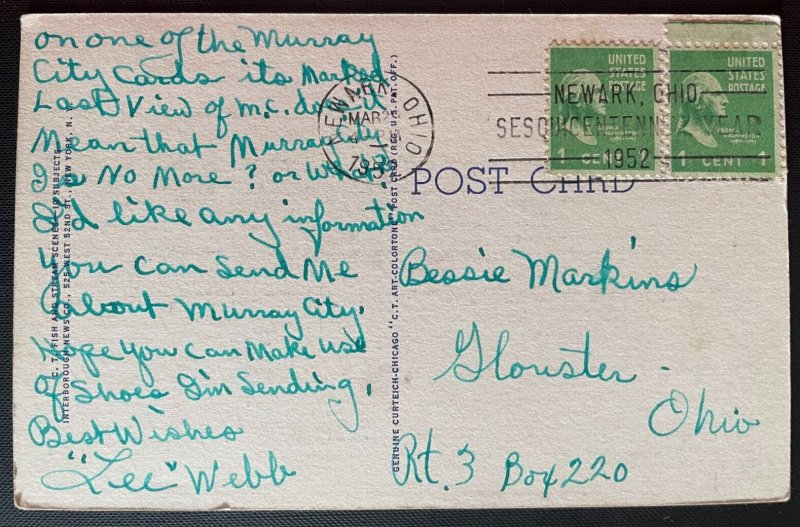 on one of the Murray
City Cards its Marked
Last View of M.C. does it
Mean that Murray City
Is No More? or What?
I'd like any information
You can Send Me
about Murray City.
Hope you can Make use
of Shoes I'm Sending,
Best Wishes
"Lee" Webb
C. T. FISH AND STREAM SCENES
SUBJECTS
INTERBOROUGH NEWS CO., 525 WEST 52ND ST., NEW YORK, N.
GENUINE CURTEICH-CHICAGO "C.T. ART-COLORTONE" POST CARD (REG. U.S. PAT. OFF.)
NEWARK, OHIO
MAR 2
195
NEWARK, OHIO
SESQUICENTENNIAL YEAR
1952
UNITED
STATES
POSTAGE
GEORGE
WASHINGTON
1 CENT
UNITED
STATES
POSTAGE
GEORGE
WASHINGTON
1 CENT 1
POST CARD
Bessie Markins
Glouster
Ohio
Rt. 3 Box 220